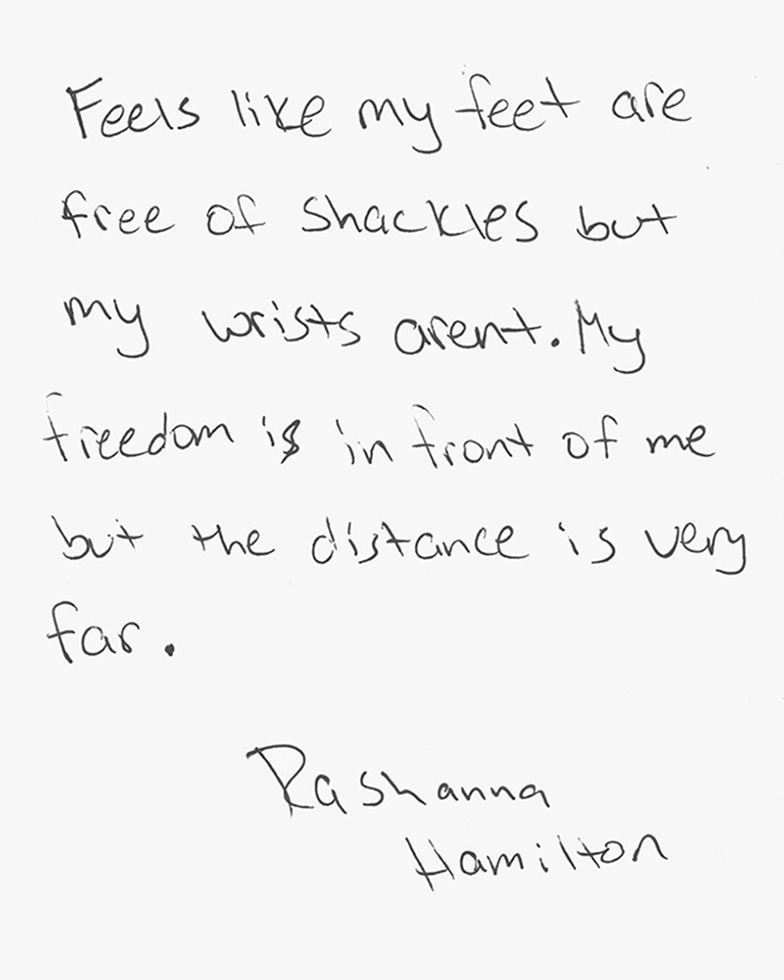 Feels like my feet are
free of shackles but
my wrists arent. My
freedom is in front of me
but the distance is very
far.
Rashanna
Hamilton